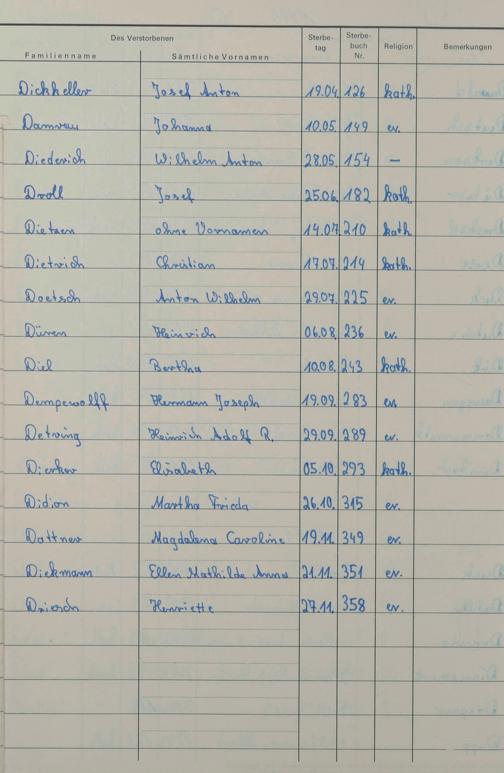 Des Verstorbenen Sterbe- tag Sterbe- buch Nr. Religion Bemerkungen
Familienname Sämtliche Vornamen
Dickheller Josef Anton 19.04. 126 kath.
Damrau Johanna 10.05. 149 ev.
Diederich Wilhelm Anton 28.05. 154 –
Droll Josef 25.06. 182 kath.
Dietzen ohne Vornamen 14.07. 210 kath
Dietrich Christian 17.07. 214 kath.
Doetsch Anton Wilhelm 29.07. 225 ev.
Düren Heinrich 06.08. 236 ev.
Diel Bertha 10.08. 243 kath.
Dempewolff Hermann Joseph 19.09. 283 ev.
Detring Heinrich Adolf R. 29.09. 289 ev.
Dierker Elisabeth 05.10. 293 kath.
Didion Martha Frieda 26.10. 315 ev.
Dattner Magdalena Caroline 19.11. 349 ev.
Dickmann Ellen Mathilde Anna 21.11. 351 ev.
Henriette 27.11. 358 ev.